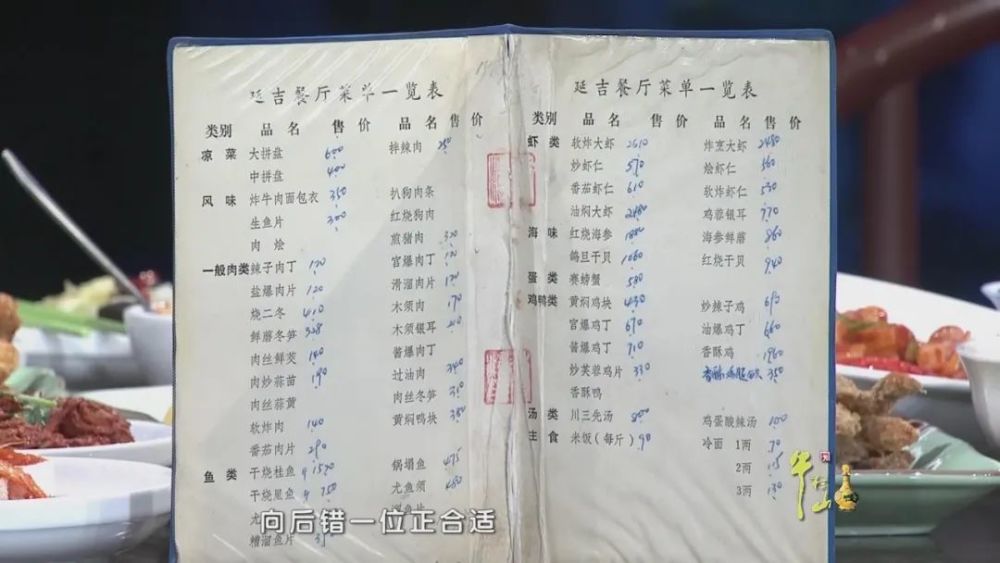 延吉餐厅菜单一览表
类别 品名 售价 品名 售价
凉菜 大拼盘 600 拌辣肉 250
中拼盘 400
风味 炸牛肉面包衣 350 扒狗肉条
生鱼片 300 红烧狗肉
肉烩 煎猪肉 320
一般肉类 辣子肉丁 120 宫爆肉丁 120
盐爆肉片 120 滑溜肉片 120
烧二冬 410 木须肉 170
鲜蘑冬笋 328 木须银耳 210
肉丝鲜茭 140 酱爆肉丁
肉炒蒜苗 190 过油肉 340
肉丝蒜黄 肉丝冬笋
软炸肉 140 黄焖鸭块 380
番茄肉片 290
鱼类 干烧桂鱼 锅塌鱼 475
干烧黑鱼 750 尤鱼须 480
糟溜鱼片
延吉餐厅菜单一览表
类别 品名 售价 品名 售价
虾类 软炸大虾 2610 炸烹大虾 2480
炒虾仁 570 烩虾仁 560
番茄虾仁 610 软炸虾仁 530
油焖大虾 2480 鸡蓉银耳 770
海味 红烧海参 1080 海参鲜蘑 860
鸽旦干贝 1060 红烧干贝 940
蛋类 赛螃蟹 530
鸡鸭类 黄焖鸡块 430 炒辣子鸡 690
宫爆鸡丁 670 油爆鸡丁 660
酱爆鸡丁 710 香酥鸡 1960
炒芙蓉鸡片 330 香酥 350
香酥鸭
汤类 川三先汤 800 鸡蛋酸辣汤 100
主食 米饭(每斤) 90 冷面 1两 70
2两 115
3两 130
向后错一位正合适